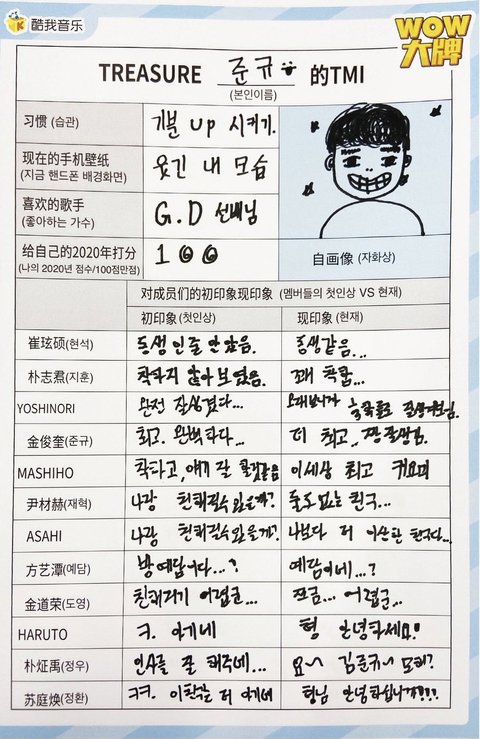 酷我音乐
WOW
大牌
TREASURE 준규 的TMI
(본인이름)
习惯 (습관)
기분 up 시키기.
现在的手机壁纸
(지금 핸드폰 배경화면)
웃긴 내 모습
喜欢的歌手
(좋아하는 가수)
G.D 선배님
给自己的2020年打分
(나의 2020년 점수/100점만점)
100
自画像 (자화상)
对成员们的初印象现印象 (멤버들의 첫인상 VS 현재)
初印象(첫인상) 现印象(현재)
崔玹硕(현석) 동생인줄 안았음. 동생같음...
朴志君(지훈) 착하지 않아 보였음. 꽤 착함...
YOSHINORI 완전 잘생겼다... 오래보니까
金俊奎(준규) 최고. 완벽하다... 더 최고. 짱 잘생김.
MASHIHO 착하고, 얘기 잘 이세상 최고 귀요미
尹材赫(재혁) 나랑 친해질수있을까? 둘도 없는 친구...
ASAHI 나랑 친해질수있을까? 나보다 더 이상한 친구다...
方艺潭(예담) 방예담이다...? 예담이네...?
金道荣(도영) 친해지기 어렵군... 조금... 어렵군..
HARUTO ㅋ. 아기네 형 안녕하세요!
朴炡禹(정우) 인사를 잘 해주네... 요~ 김준규~ 모해?
苏庭焕(정환) ㅋㅋ. 이친구는 더 아기네 형님 안녕하십니까???